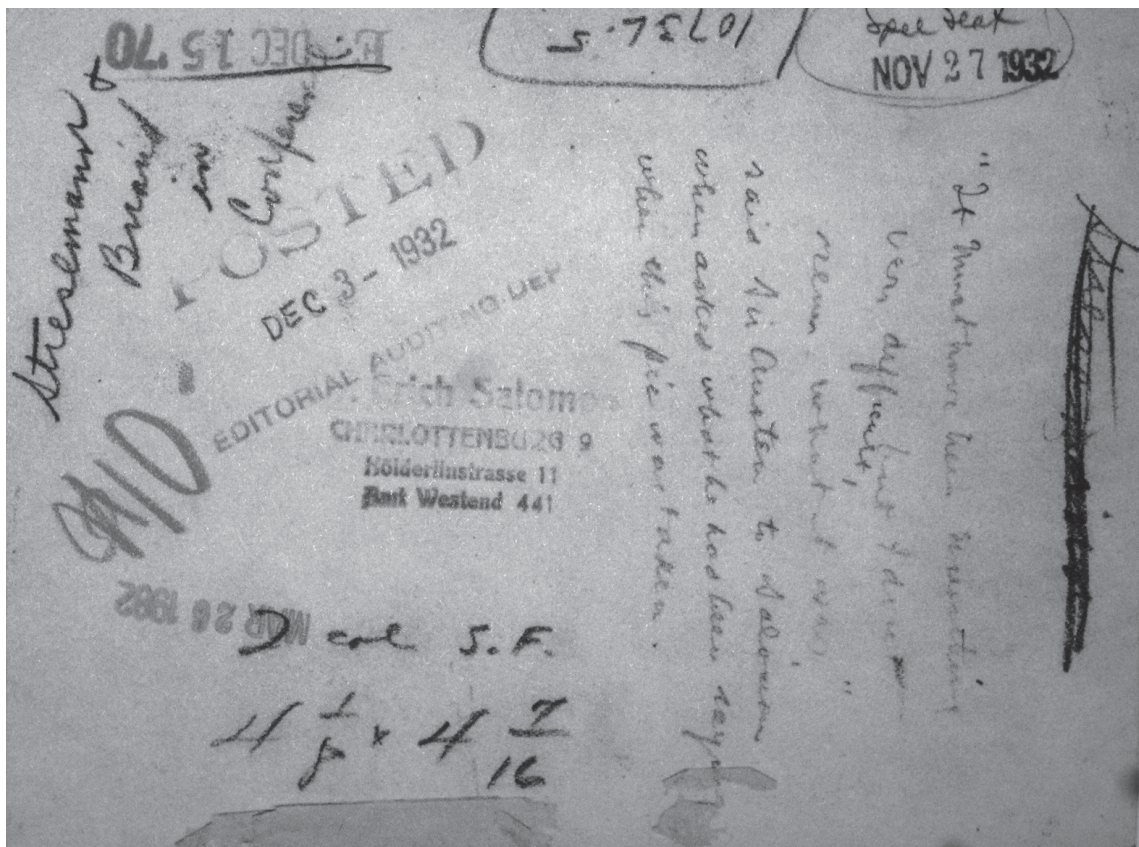 E. DEC 15 '70
10731.5
Spec Seat
NOV 27 1932
Stresemann &
Briand
in
Conference
POSTED
DEC 3 - 1932
EDITORIAL AUDITING DEP
Erich Salomon
CHARLOTTENBURG 9
Hölderlinstrasse 11
Amt Westend 441
"It must have been something
very difficult, but I don't
mean what it was,"
said Sir Austen to Salomon
when asked what he had been saying
when this pic was taken.
MAR 26 1982
D col S.F.
4 1/8 x 4 7/16